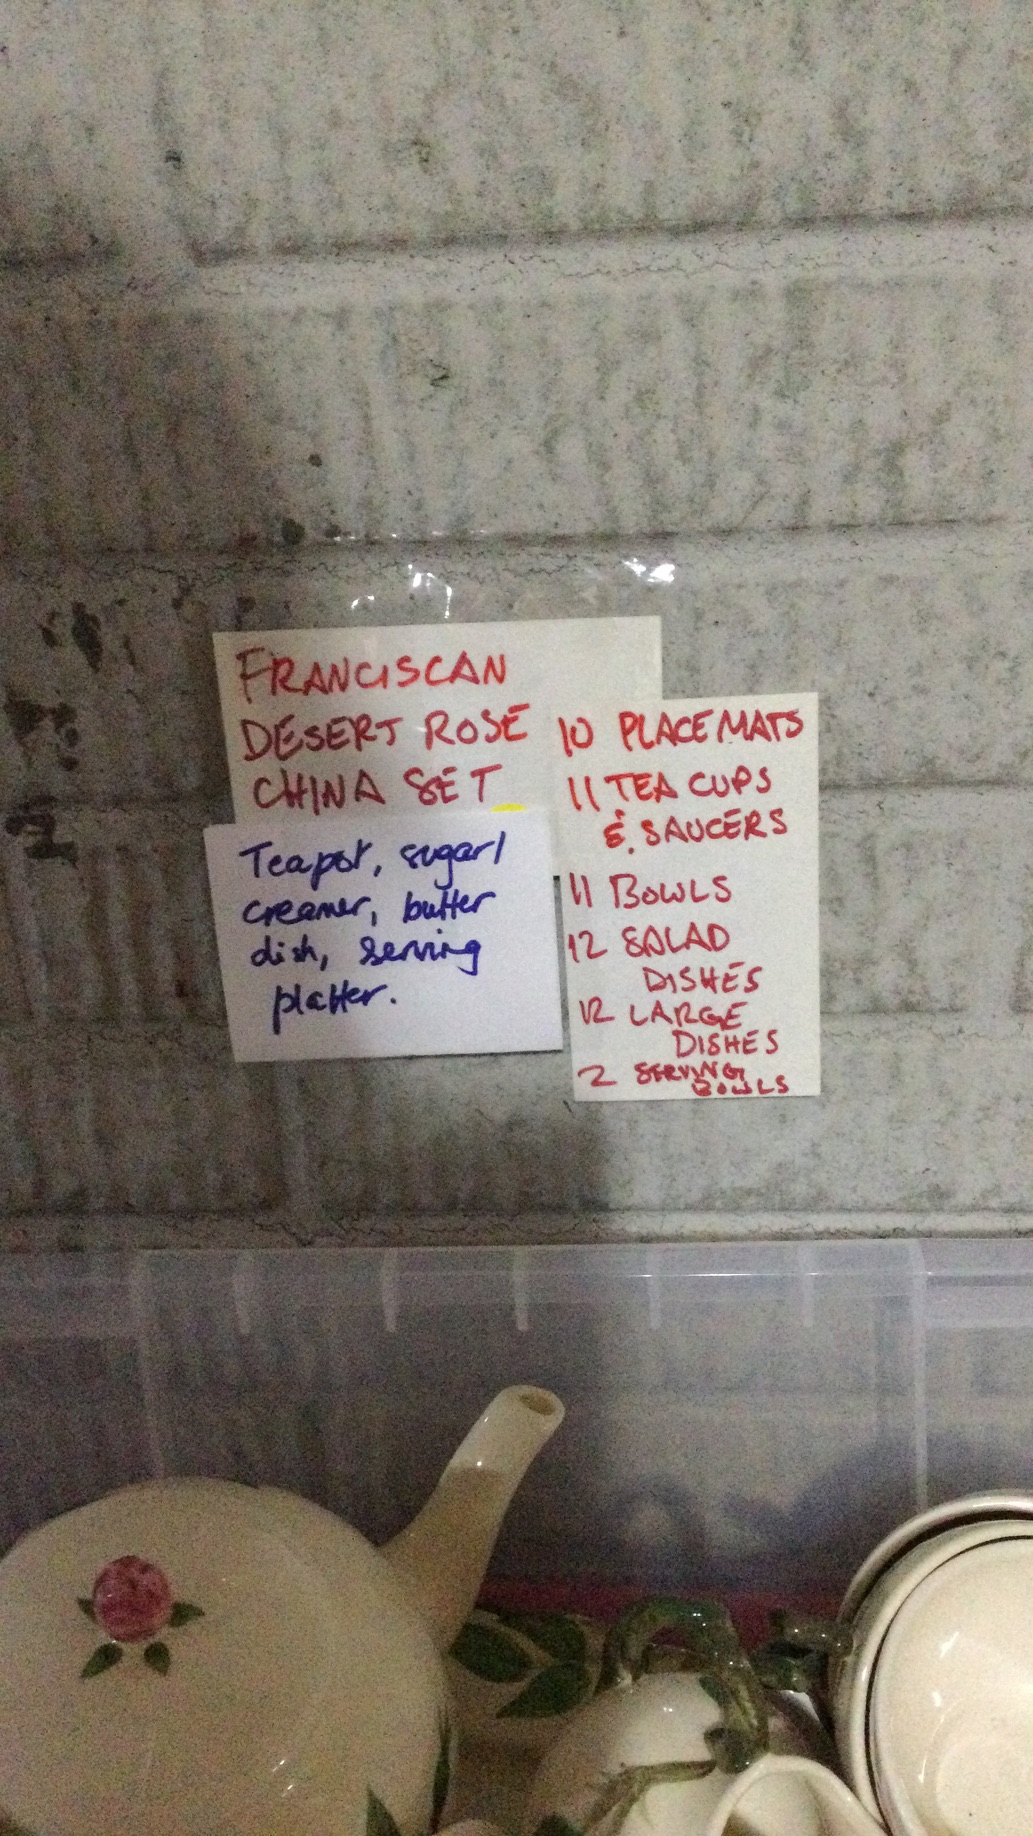 FRANCISCAN
DESERT ROSE
CHINA SET
Teapot, sugar/
creamer, butter
dish, serving
platter.
10 PLACEMATS
11 TEA CUPS
& SAUCERS
11 BOWLS
12 SALAD
DISHES
12 LARGE
DISHES
2 SERVING
BOWLS